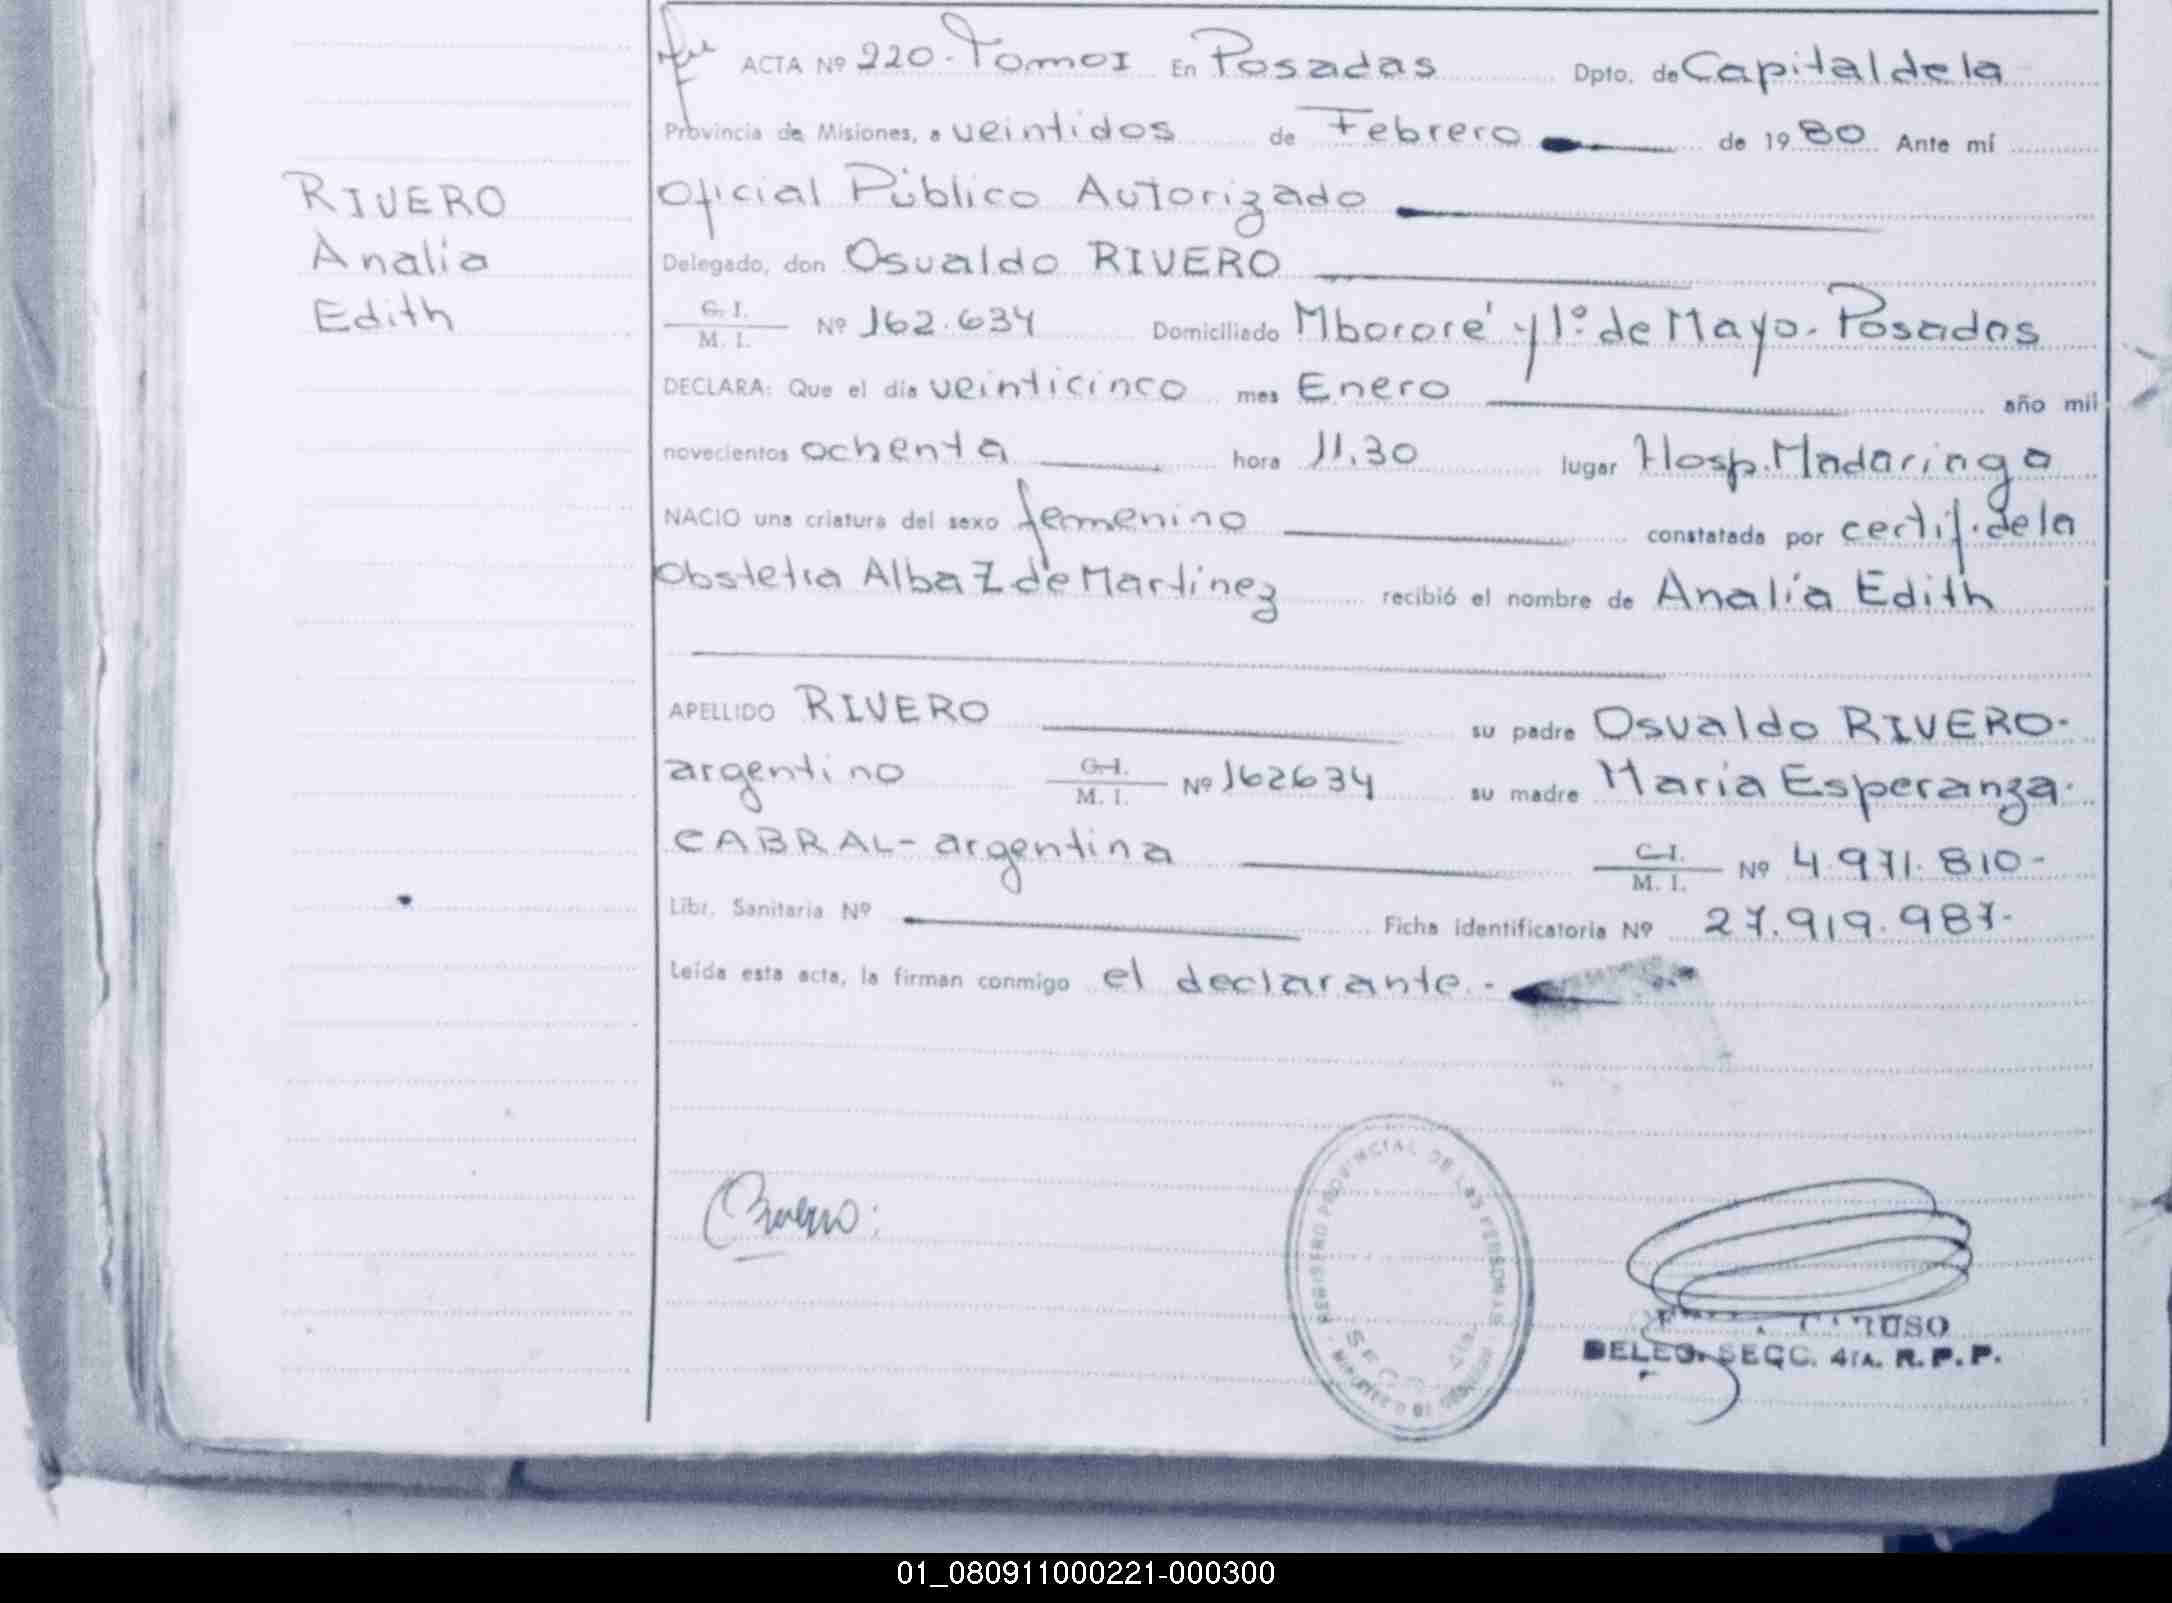 ACTA Nº 220. Tomo I En Posadas Dpto. de Capital de la
Provincia de Misiones, a veintidos de Febrero de 1980 Ante mí
Oficial Público Autorizado
RIVERO
Analía
Edith
Delegado, don Osvaldo RIVERO
C. I.
M. I. Nº 162.634 Domiciliado Mbororé y 1º de Mayo. Posadas
DECLARA: Que el día veinticinco mes Enero año mil
novecientos ochenta hora 11,30 lugar Hosp. Madaringa
NACIO una criatura del sexo femenino constatada por certif. de la
Obstetra Alba Z de Martínez recibió el nombre de Analía Edith
APELLIDO RIVERO su padre Osvaldo RIVERO-
argentino C. I.
M. I. Nº 162634 su madre María Esperanza
CABRAL- argentina C. I.
M. I. Nº 4.971.810-
Libr. Sanitaria Nº Ficha identificatoria Nº 27.919.987-
Leída esta acta, la firman conmigo el declarante.-
REGISTRO PROVINCIAL DE LAS PERSONAS
SECC. 4TA.
CARUSO
DELEG. SECC. 4TA. R.P.P.
01_080911000221-000300